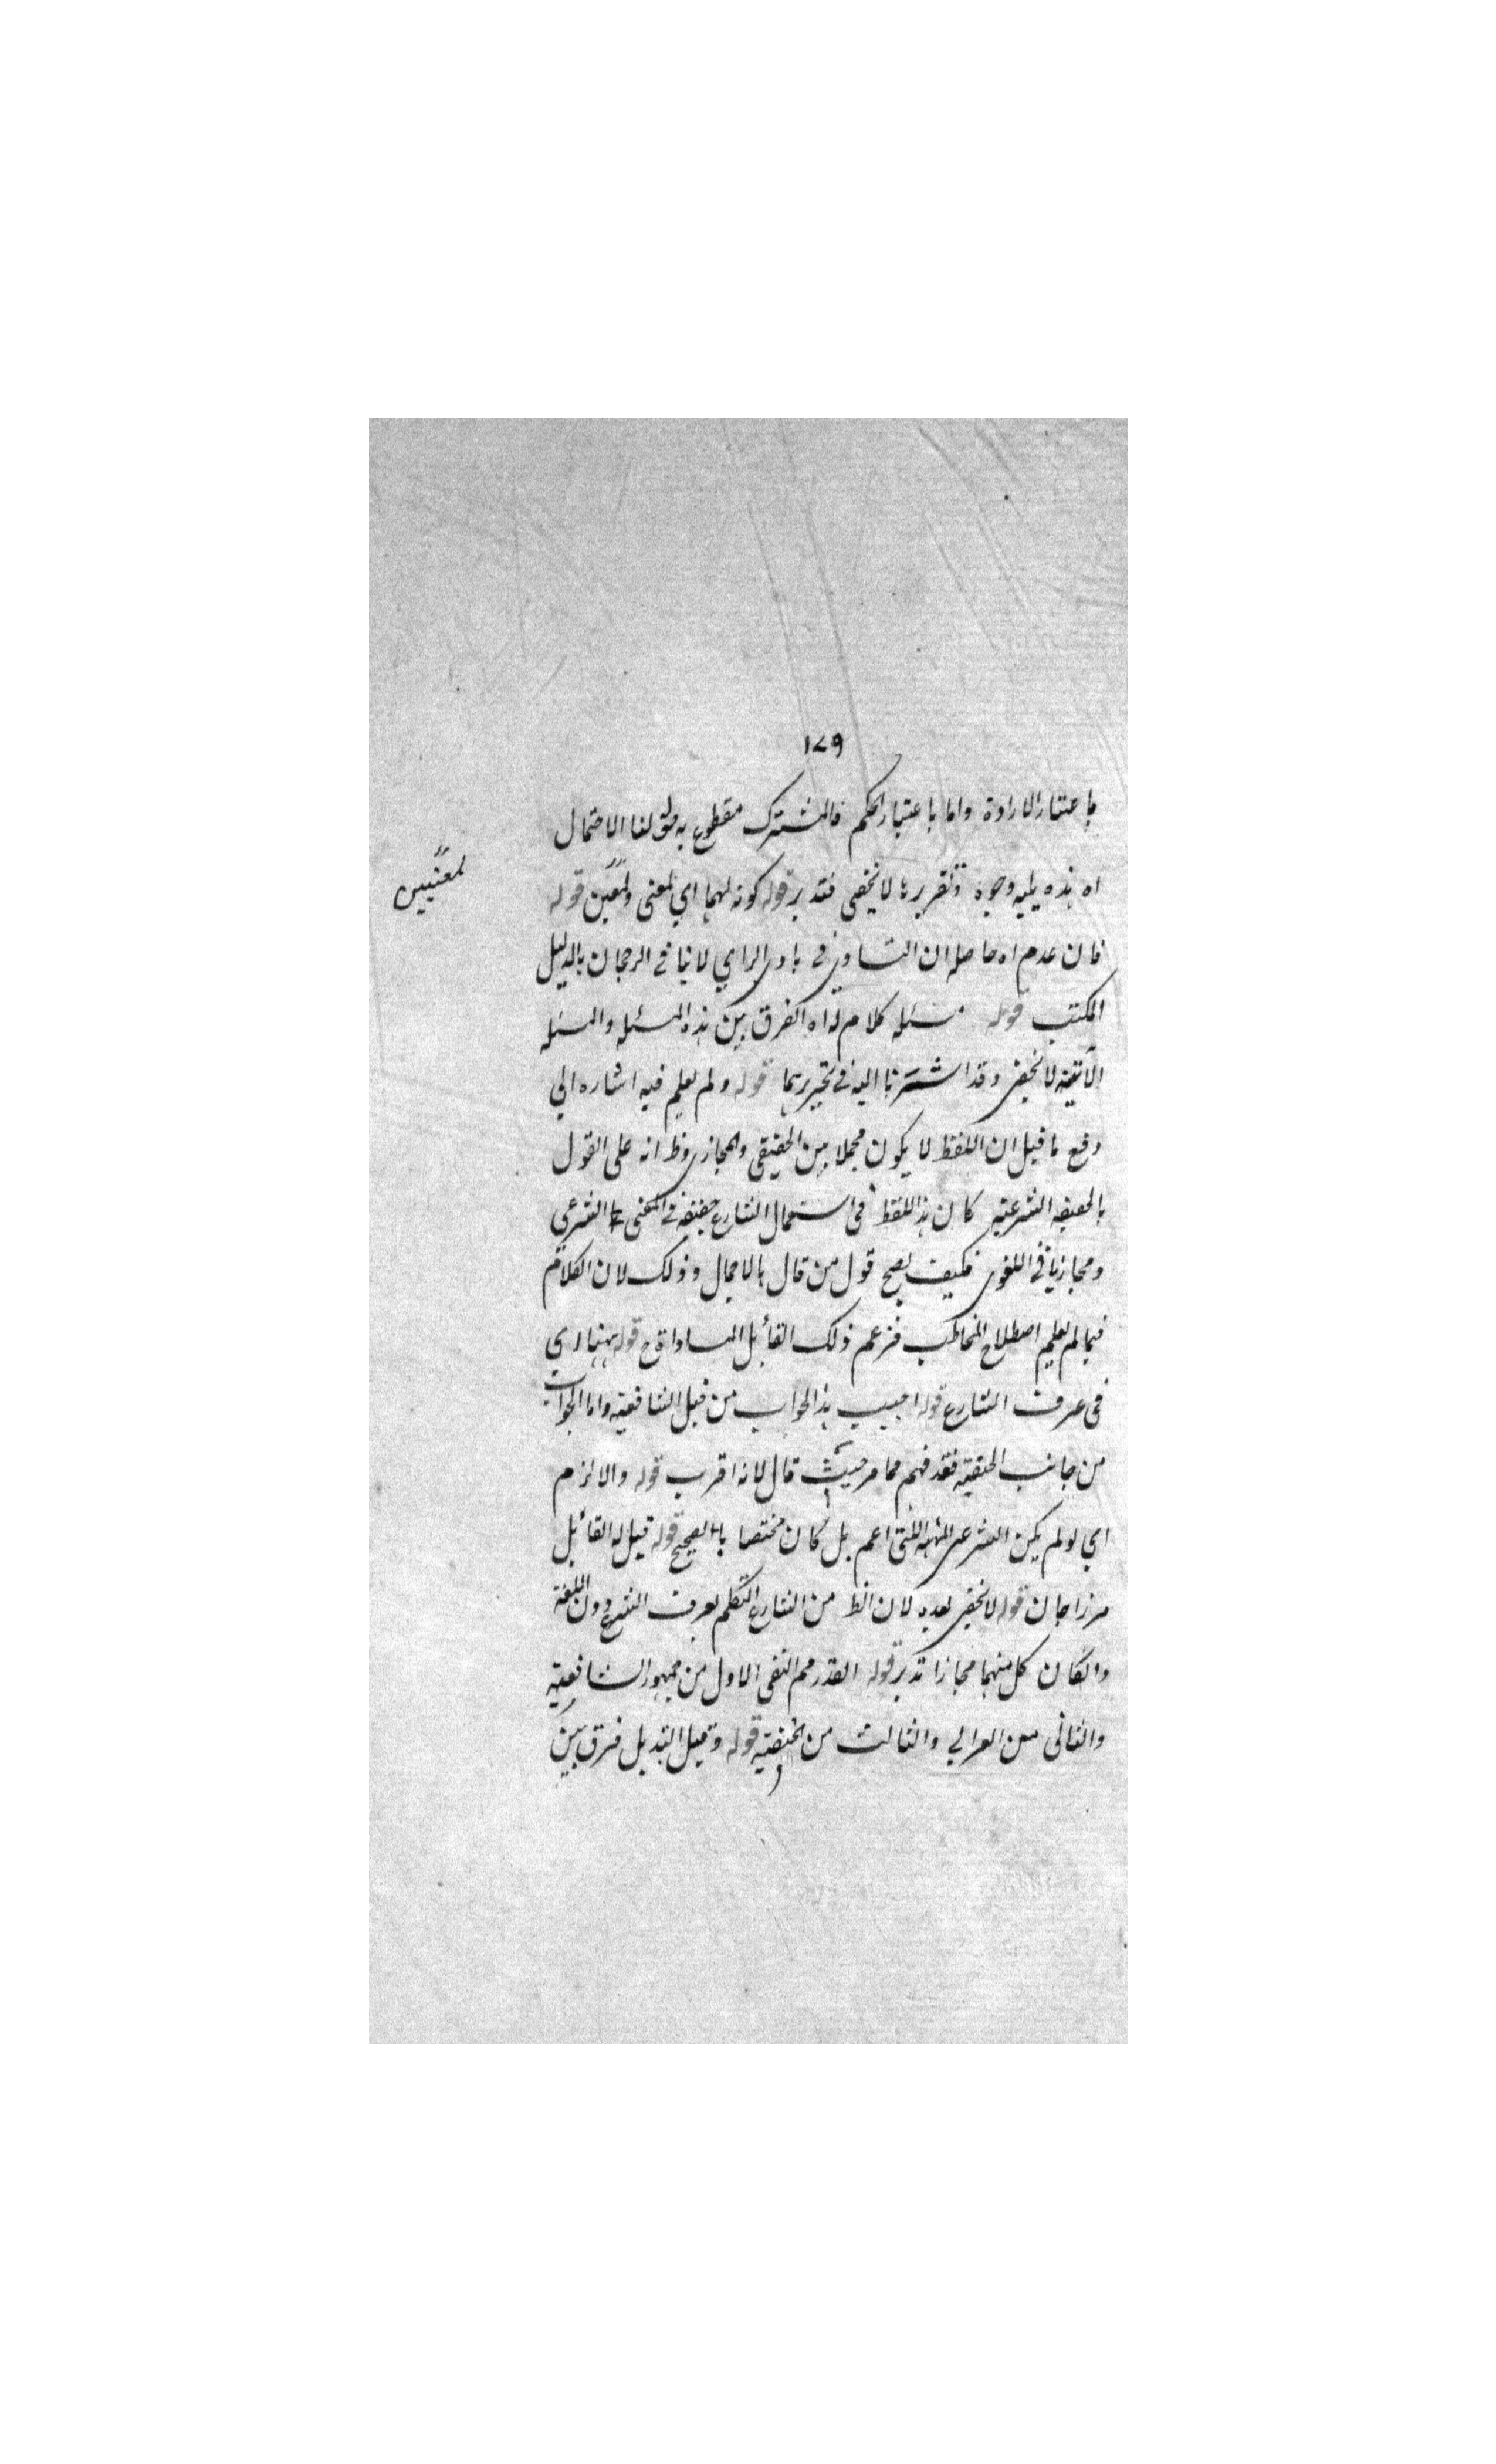 ١٧٩
باعتبار الارادة واما باعتبار الحكم فالمشترك مقطوع به قوله لنا الاحتمال
اه هذه يليه وجوه وتقريرها لا يخفى فتدبر قوله كونه لهما اي لمعنى ولمعنيين قوله
لمعنيين
فان عدم اه حاصله ان التساوي في بادي الراي لا ينافي الرجحان بالدليل
المكتسب قوله مسئلة كلام له اه الفرق بين هذه المسئلة والمسئلة
الآتية لا يخفى وقد اشرنا اليه في تحريرهما قوله ولم يعلم فيه اشارة الى
دفع ما قيل ان اللفظ لا يكون مجملا بين الحقيقي والمجازي وظ انه على القول
بالحقيقة الشرعية كان هذا اللفظ في استعمال الشارع حقيقة في المعنى الشرعي
ومجازيا في اللغوي فكيف يصح قول من قال بالاجمال وذلك لان الكلام
فيما لم يعلم اصطلاح التخاطب فزعم ذلك القائل المساواة ح قوله ههنا اي
في عرف الشارع قوله اجيب هذا الجواب من قبل الشافعية واما الجواب
من جانب الحنفية فقد فهم مما مر حيث قال لانه اقرب قوله والا لزم
اي لو لم يكن الشرعي اعم بل كان مختصا بالصحيح قوله قيل له القائل
مرزاجان قوله لا يخفى بعده لان الظ من الشارع التكلم بعرف الشرع دون اللغة
وان كان كل منهما مجازا تدبر قوله النفي الاول من جمهور الشافعية
والثاني من الغزالي والثالث من الحنفية قوله وقيل التبديل فرق بين